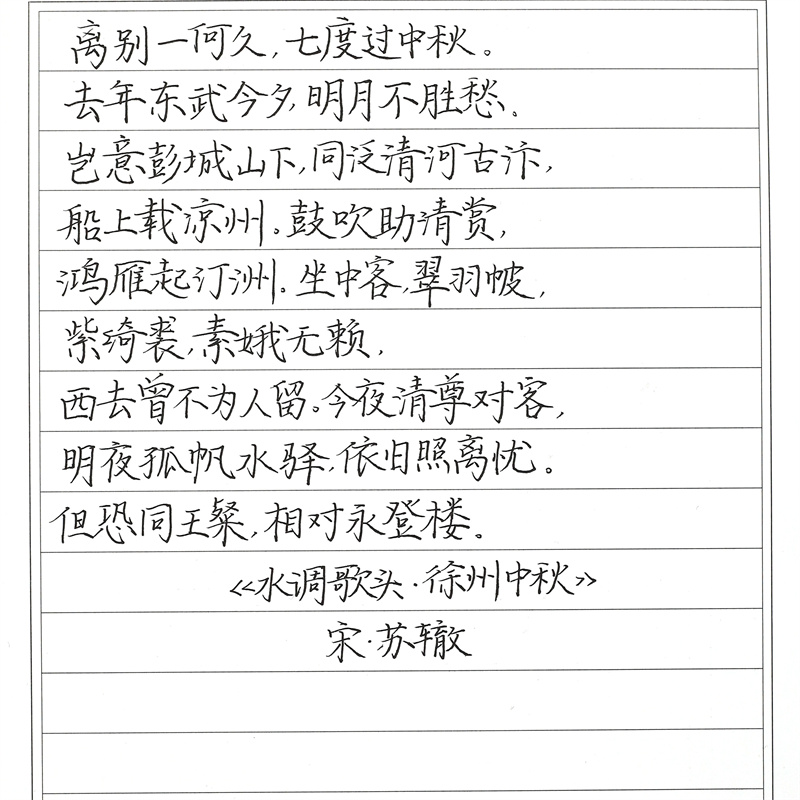 离别一何久,七度过中秋。
去年东武今夕,明月不胜愁。
岂意彭城山下,同泛清河古汴,
船上载凉州。鼓吹助清赏,
鸿雁起汀洲。坐中客,翠羽帔,
紫绮裘,素娥无赖,
西去曾不为人留。今夜清尊对客,
明夜孤帆水驿,依旧照离忧。
但恐同王粲,相对永登楼。
《水调歌头·徐州中秋》
宋·苏辙